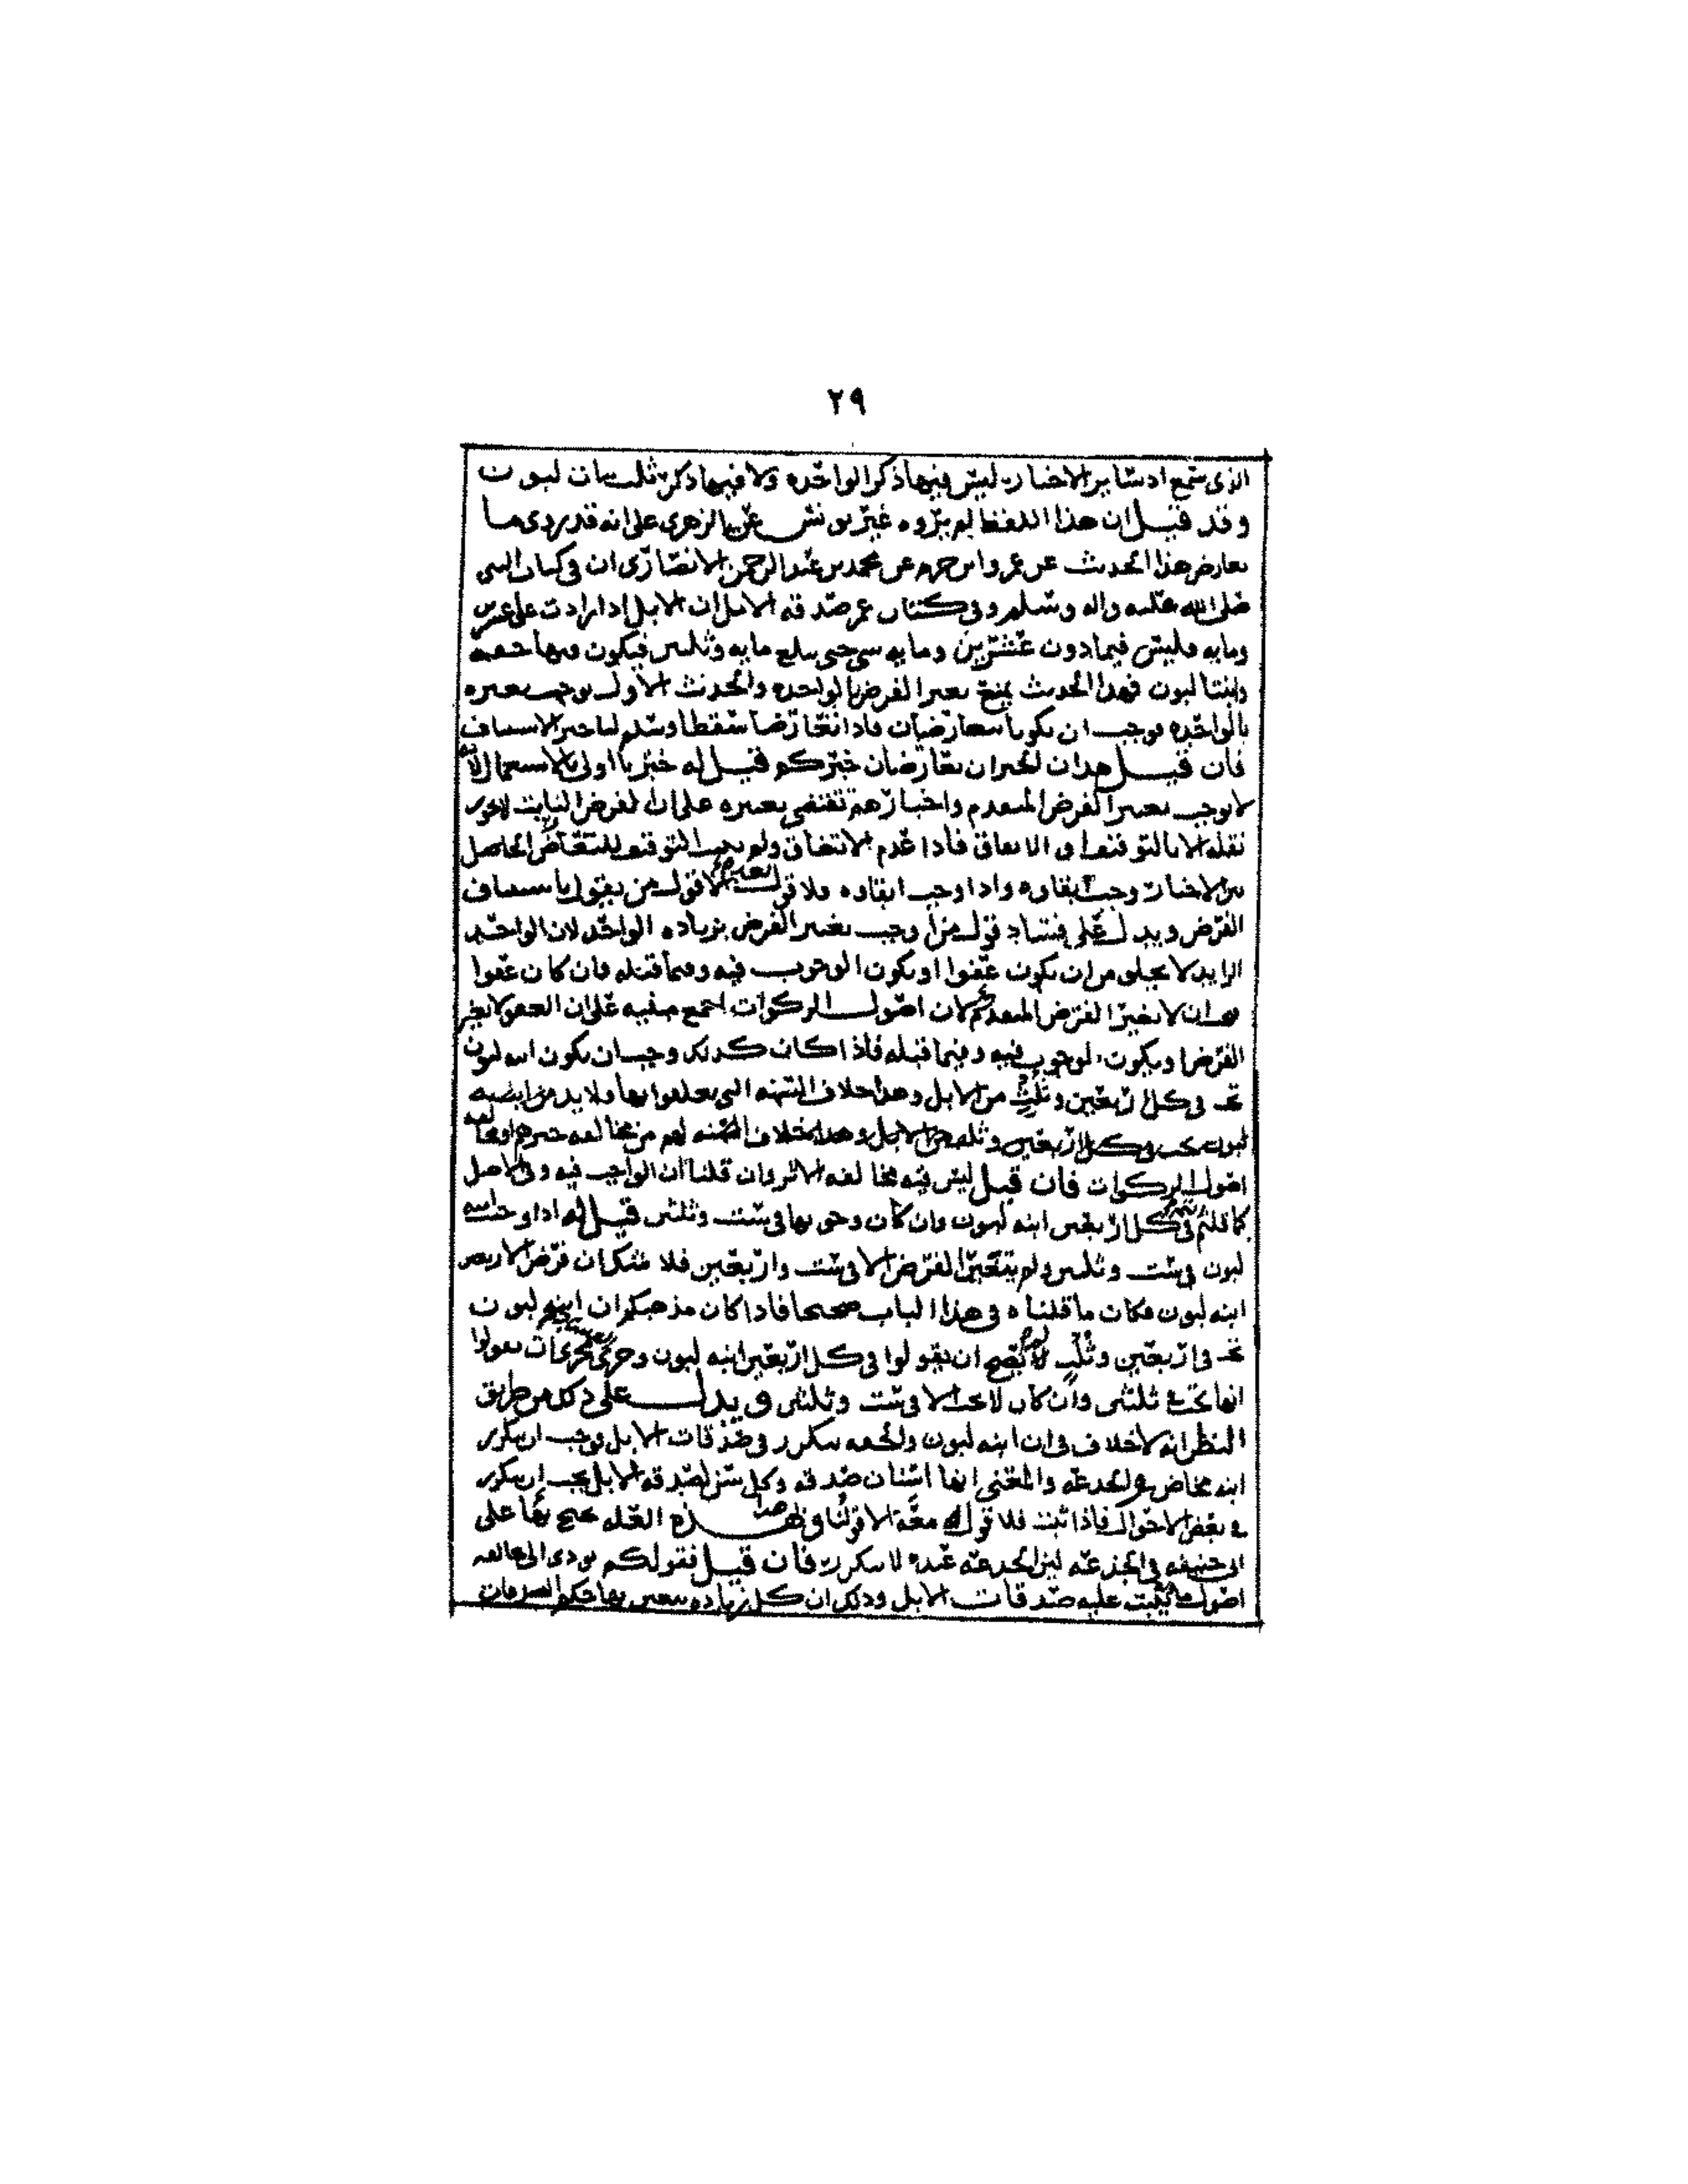 ٢٩
الذى سمع اد سائر الاخبار ليس فيها ذكر الواحده ولا فيها ذكر ثلث بنات لبون
وقد قيل ان هذا اللفظ لم يروه غير يونس عن الزهرى على انه قد روى ما
يعارض هذا الحديث عن عمرو ابن حزم عن محمد بن عبد الرحمن الانصارى ان فى كتاب النبى
صلى الله عليه واله وسلم وفى كتاب عمر صدقه الابل ان الابل اذا زادت على عشرين
ومايه فليس فيما دون عشرين ومايه شى حتى يبلغ مايه وثلثين فيكون فيها حقه
وابنتا لبون فهذا الحديث يمنع تغير الفرض بالواحده والحديث الاول يوجب تغيره
بالواحده فوجب ان يكونا متعارضان فاذا تعارضا سقطا وسلم لنا خبر الاستيناف
فان قيل هذان الخبران يعارضان خبركم قيل له خبرنا اولى بالاستعمال لانه
لا يوجب تغير الفرض المتقدم واخبارهم تقتضى تغيره على ان الفرض الثابت لا يجوز
نقله الا بالتوقيف او الاتفاق فاذا عدم الاتفاق ولم يجب التوقيف للتعارض الحاصل
بين الاخبار وجب ابقاوه واذا وجب ابقاوه فلا قول بعده الا قول من يقول باستيناف
الفرض ويدل على فساد قول من اوجب تغير الفرض بزياده الواحد لان الواحد
الزايد لا يخلو من ان يكون عفوا او يكون الوجوب فيه وفيما قبله فان كان عفوا
يجب ان لا يغير الفرض المتقدم لان اصول الزكوات اجمع مبنيه على ان العفو لا يغير
الفرض او يكون الوجوب فيه وفيما قبله فاذا كان كذلك وجب ان يكون ابنه لبون
تجب فى كل اربعين وثلث من الابل وهذا خلاف السنه التى تعلقوا بها ولا بد من ابنه
لبون تجب فى كل اربعين وثلث من الابل وهذا بخلاف السنه لهم من مخالفه خبرهم او مخالفه
اصول الزكوات فان قيل ليس فيه مخالفه الاثر وان قلنا ان الواجب فيه وفى الاصل
كما قلتم فى كل اربعين ابنه لبون وان كان وجوبها فى ست وثلثين قيل له اذا وجبت ابنه
لبون فى ست وثلثين ولم يتغير الفرض الا فى ست واربعين فلا شك ان فرض الاربعين
ابنه لبون فكان ما قلناه فى هذا الباب صحيحا فاذا كان مذهبكم ان ابنه لبون
تجب فى اربعين وثلث لم يصح ان يقولوا فى كل اربعين ابنه لبون وجرى مجرى ان يقولوا
انها تجب فى ثلثين وان كان لا تجب الا فى ست وثلثين ويدل على ذلك من طريق
النظر انه لا خلاف فى ان ابنه لبون والحقه يتكرر فى صدقات الابل فوجب ان يتكرر
ابنه مخاض والجذعه والمعنى انها اسنان صدقه وكل سن لصدقه الابل يجب ان يتكرر
فى بعض الاحوال فاذا ثبت فلا قول معه الا قولنا وهذه العله نحتج بها على
ابى حنيفه فى الجذعه لان الجذعه عنده لا يتكرر فان قيل فقولكم يودى الى مخالفه
اصول ما بنيت عليه صدقات الابل وذلك ان كل زياده يتغير بها حكم الصدقات